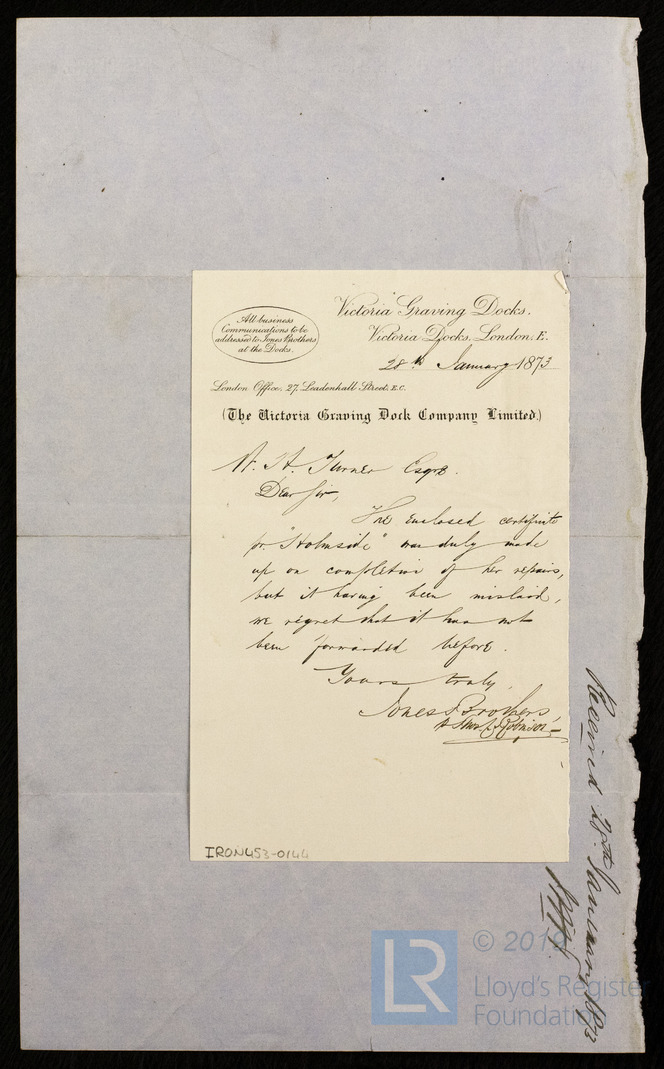 All business
Communications to be
addressed to Jones Brothers
at the Docks.
Victoria Graving Docks.
Victoria Docks, London. E.
28th January 1873
London Office, 27, Leadenhall Street, E.C.
(The Victoria Graving Dock Company Limited.)
W. H. Turner Esqre.
Dear Sir,
The enclosed certificate
for "Holmside" was duly made
up on completion of her repairs,
but it having been mislaid,
we regret that it has not
been forwarded before.
Yours truly,
Jones Brothers
Robinson
IRON453-0144
Received 28th January 1873
© 2019
LR
Lloyd's Register
Foundation